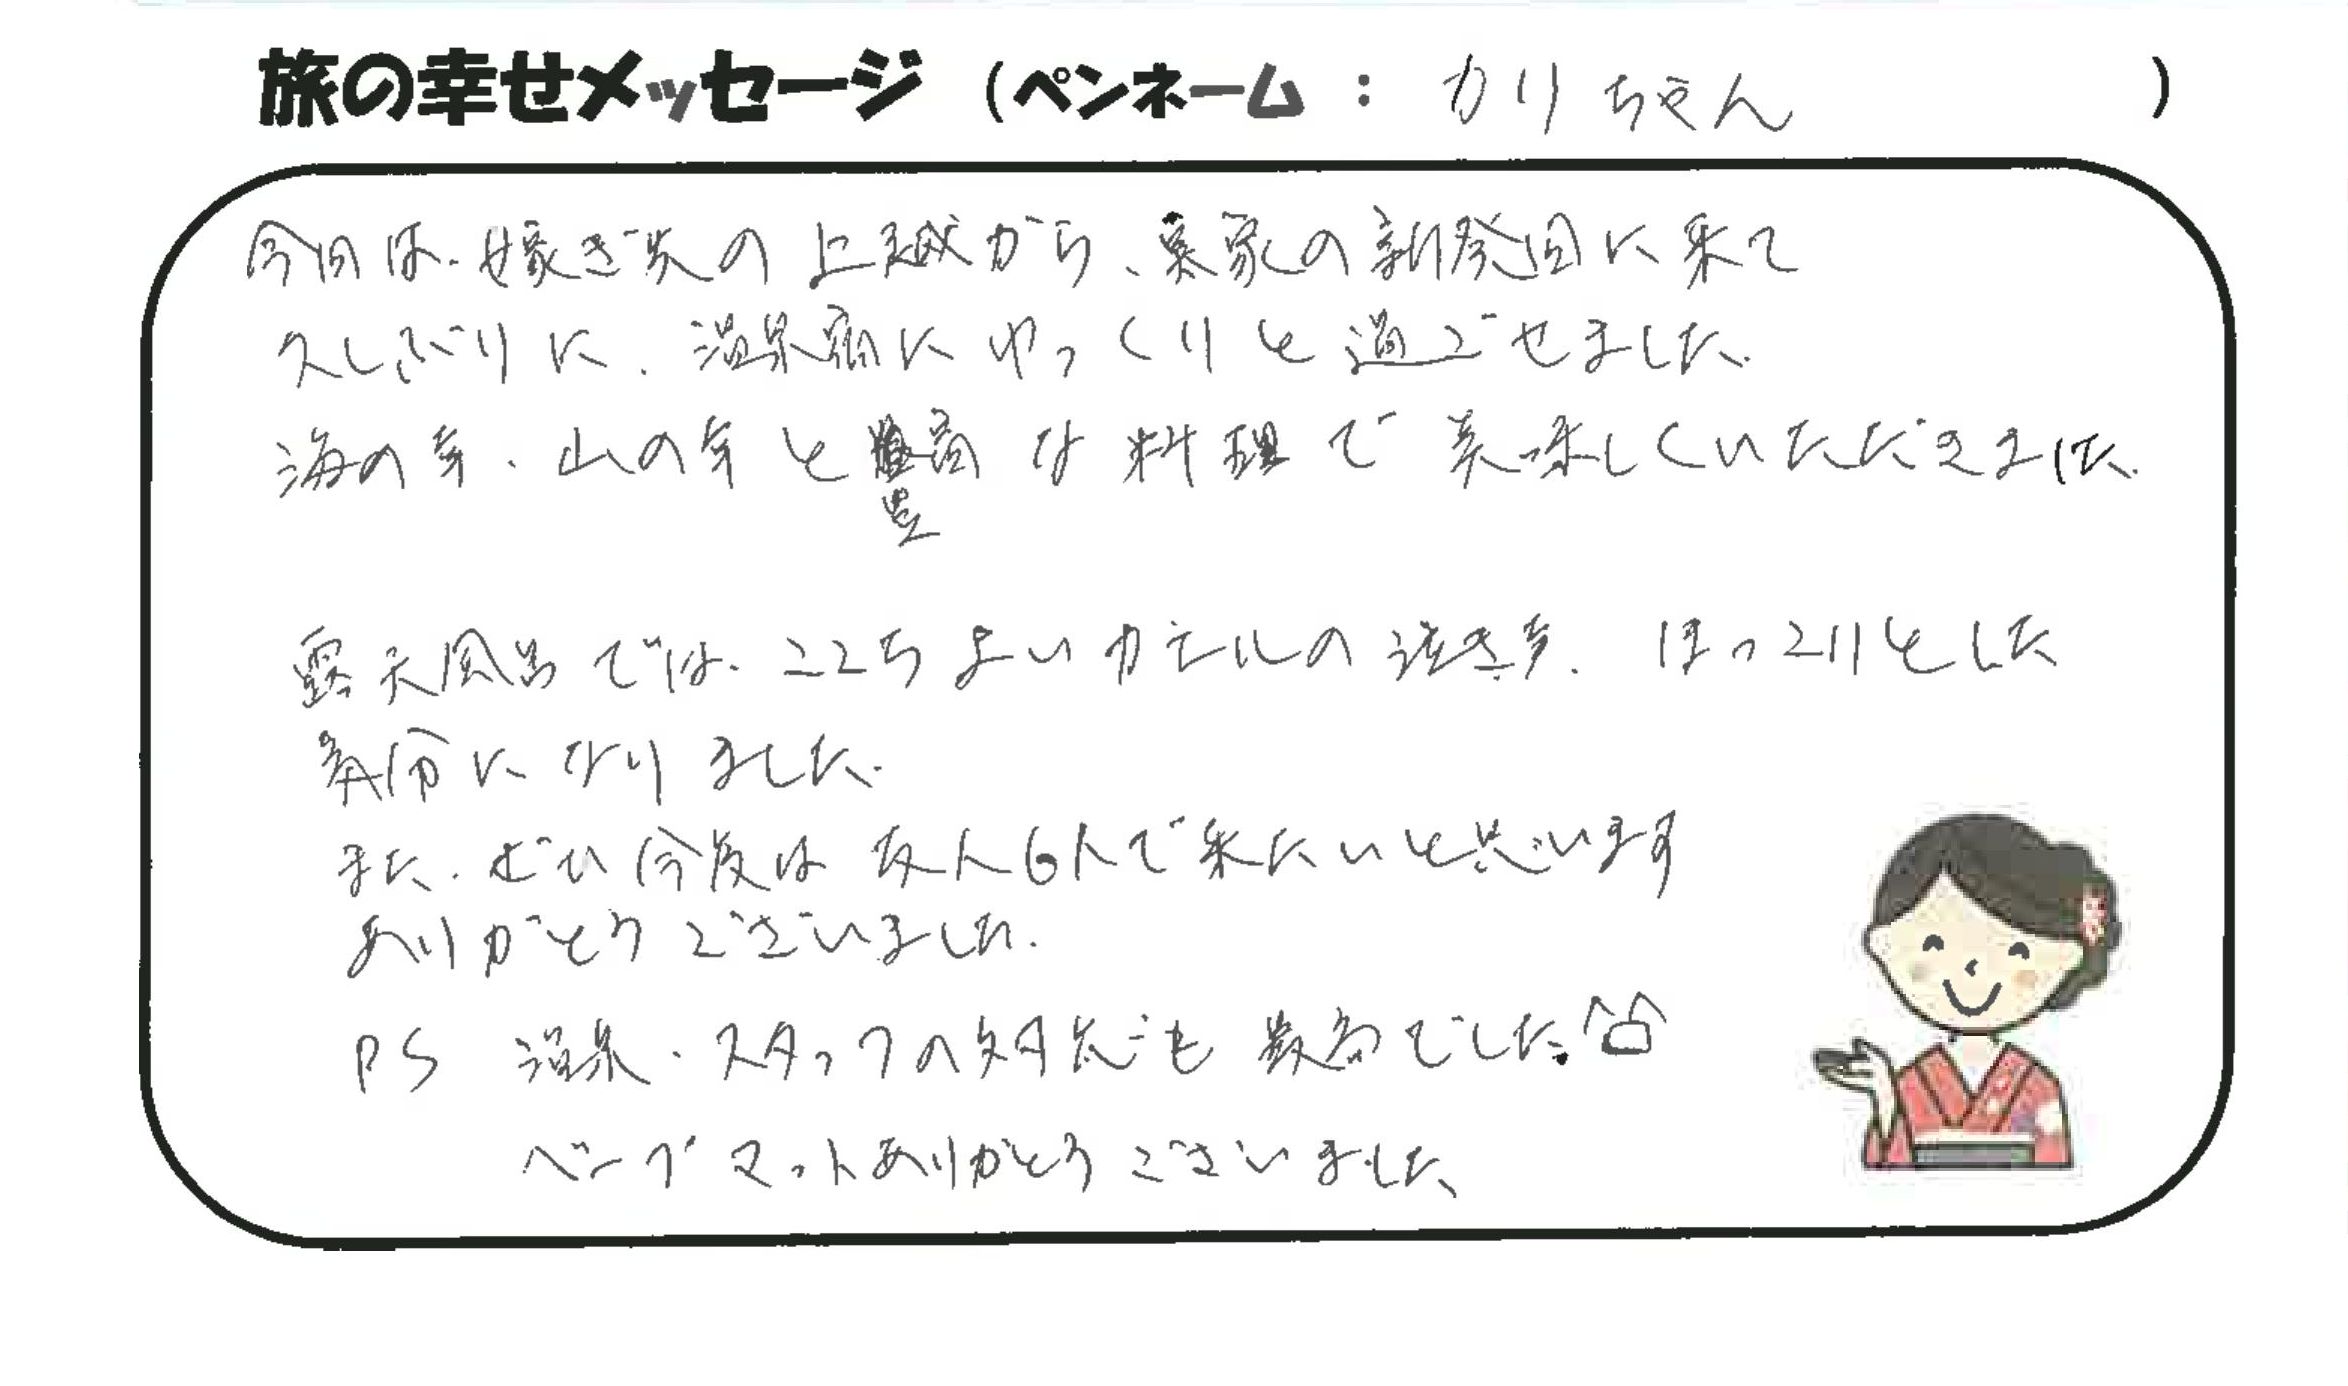 旅の幸せメッセージ (ペンネーム : かりちゃん )
今回は、嫁ぎ先の上越から、実家の新発田に来て
久しぶりに、温泉宿にゆっくりと過ごせました。
海の幸、山の幸と豊富な料理で美味しくいただきました。
豊
露天風呂では、ここちよいカエルの泣き声、ほっこりとした
気分になりました。
また、ぜひ今度は友人6人で来たいと思います
ありがとうございました。
PS 温泉、スタッフの対応も最高でした。^□^
ベープマットありがとうございました。